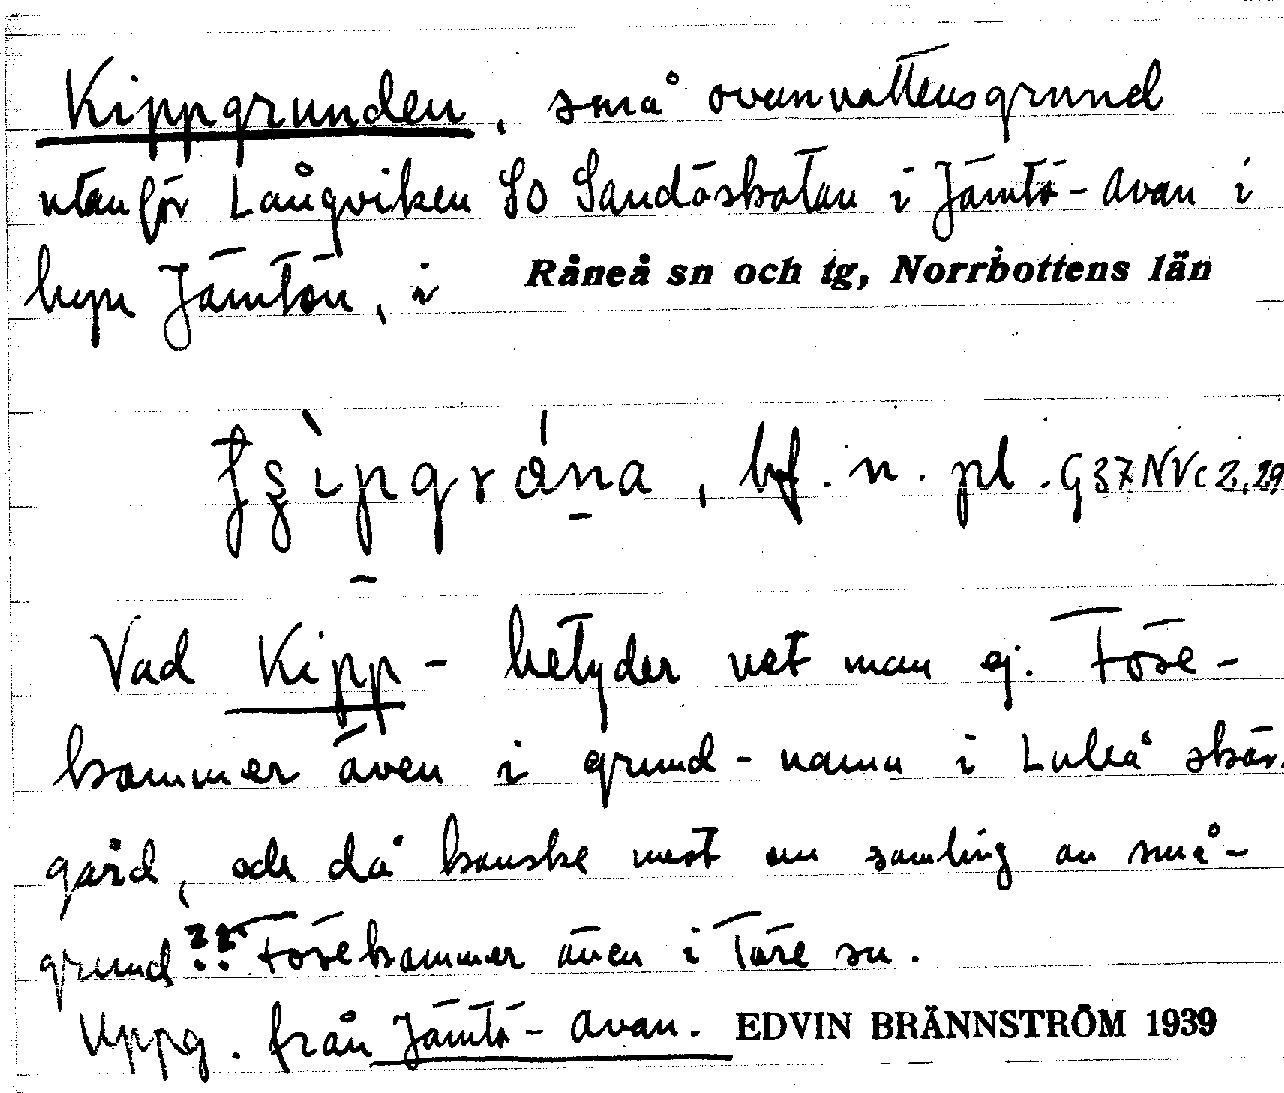 Kippgrunden, små ovanvattensgrund
utanför Långviken SO Sandöskatan i Jämtö-Avan i
byn Jämtön, i Råneå sn och tg, Norrbottens län
bf. n. pl.
Vad Kipp- betyder vet man ej. Före-
kommer även i grund-namn i Luleå skär-
gård, och då kanske mest om samling av små-
grund?? Förekommer även i Töre sn.
Uppg. från Jämtö-Avan. EDVIN BRÄNNSTRÖM 1939